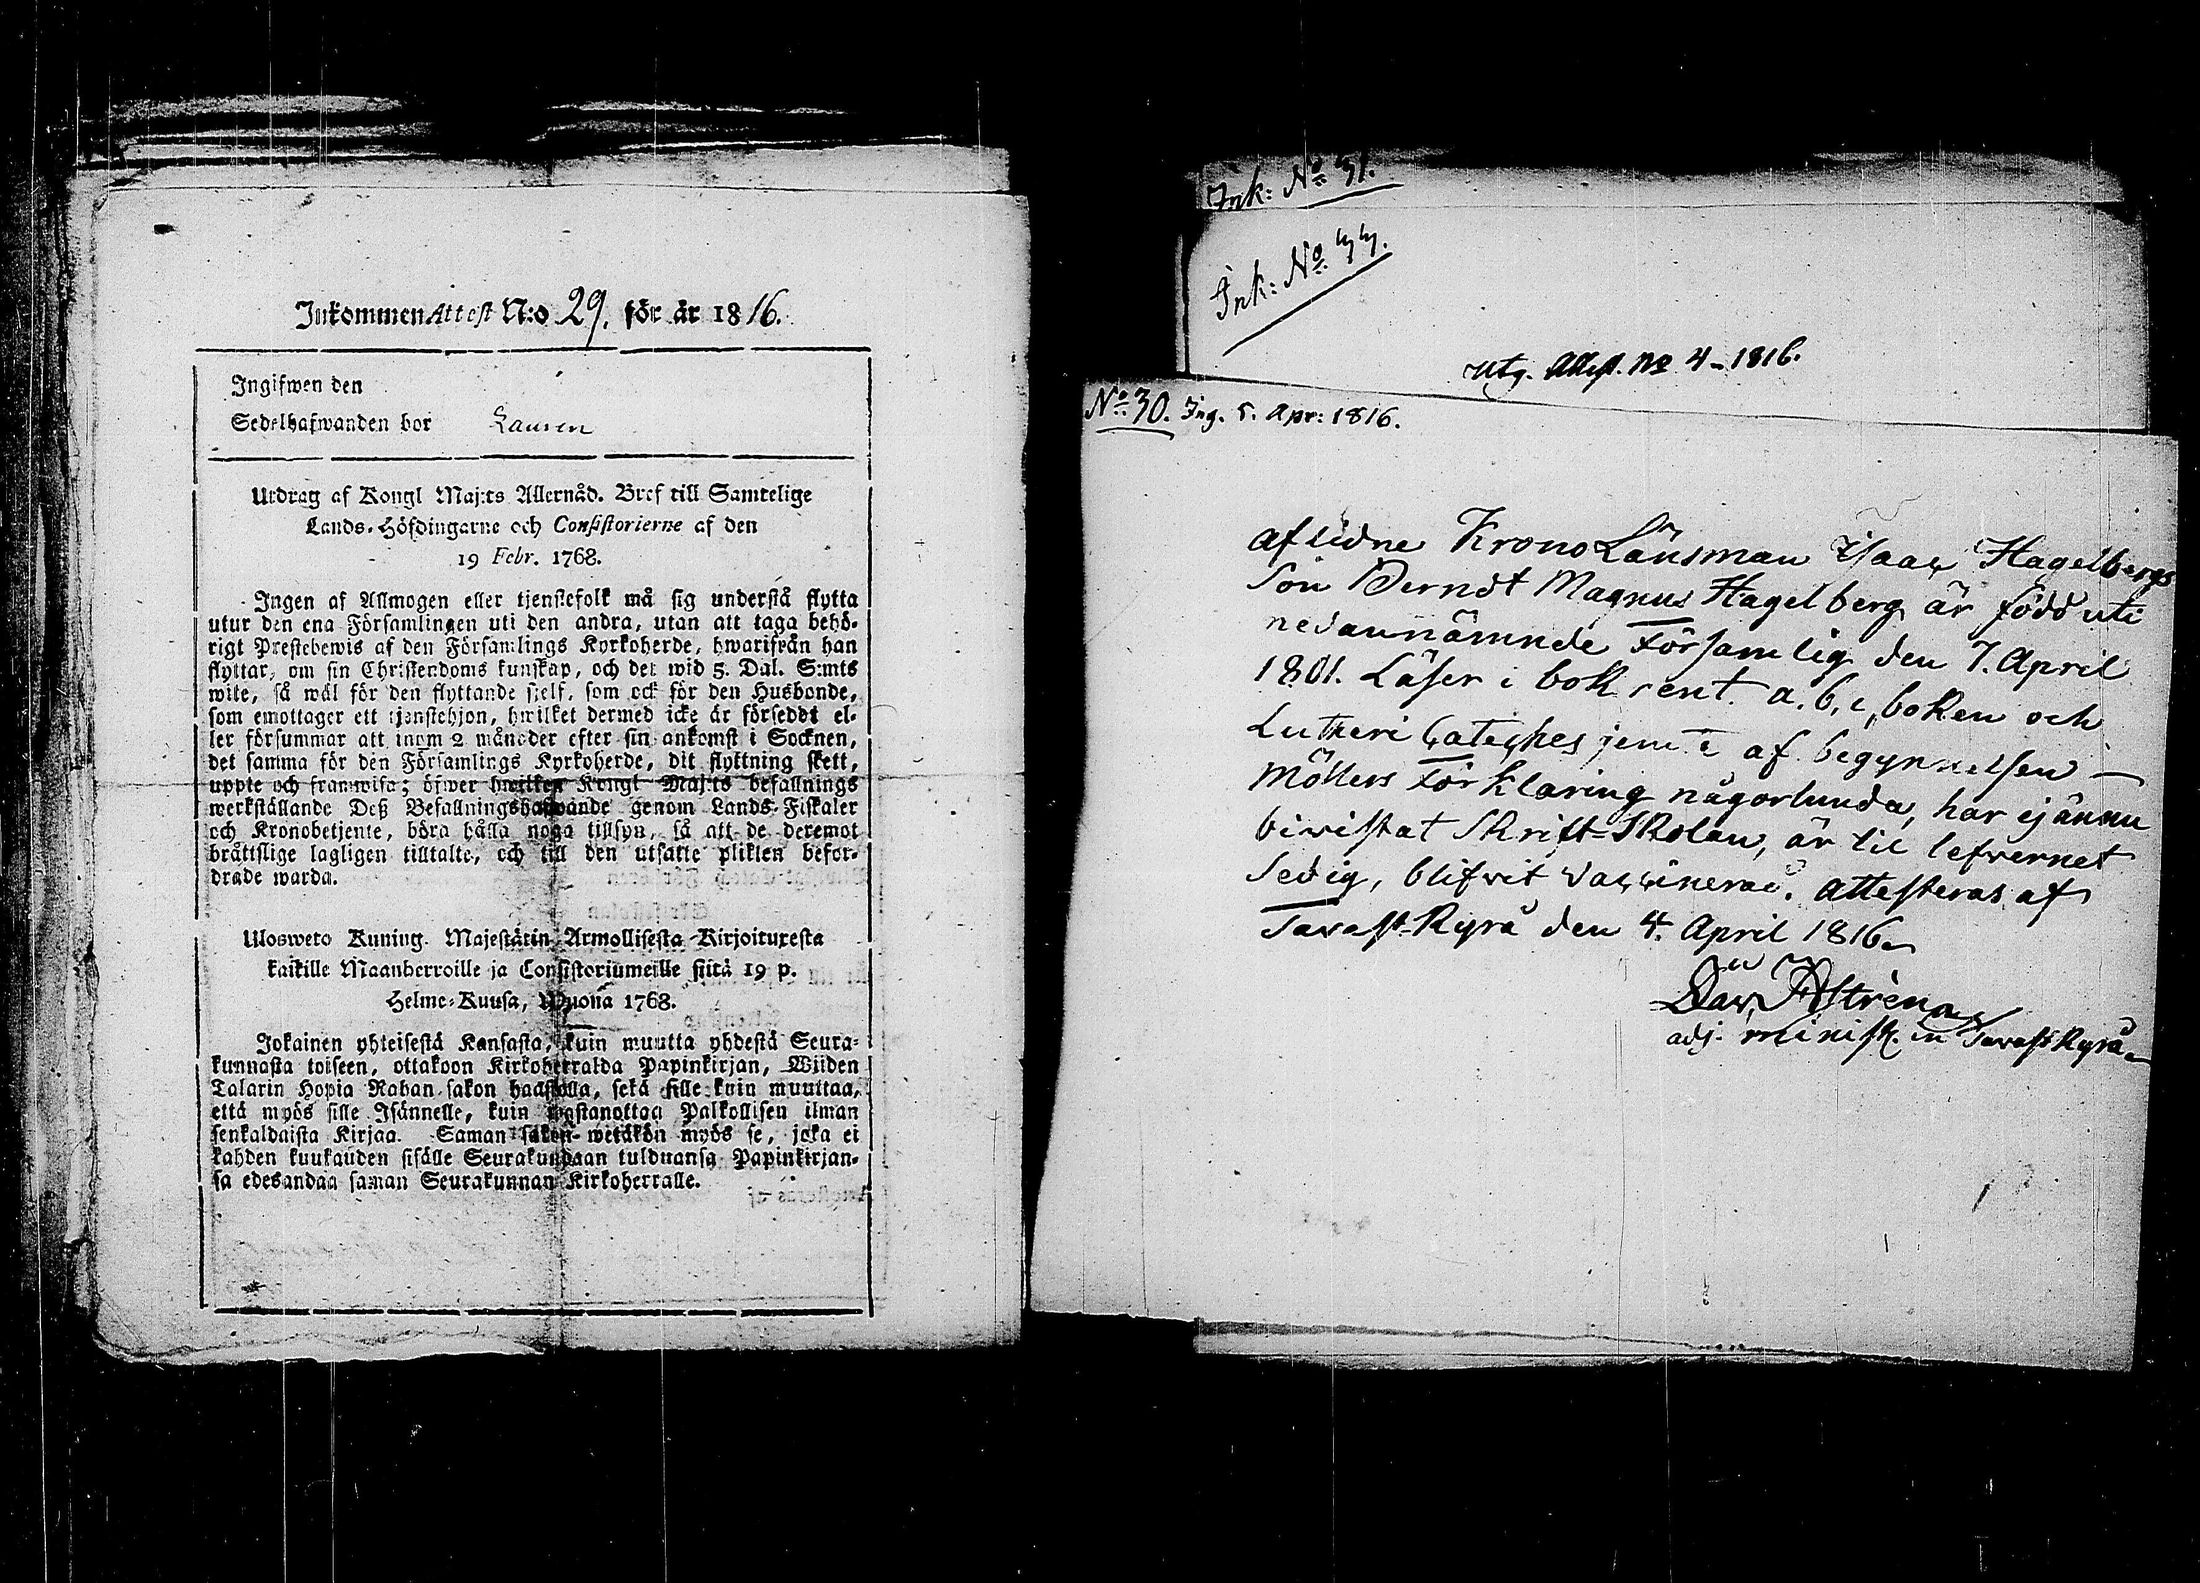 Inkommen Attest N:o 29. för år 1816.
Ingifwen den
Sedelhafwanden bor
Utdrag af Kongl Maj:ts Allernåd. Bref till Samtelige
Lands-Höfdingarne och Consistorierne af den
19 Febr. 1768.
Ingen af Allmogen eller tjenstefolk må sig understå flytta
utur den ena Församlingen uti den andra, utan att taga behö-
rigt Prestebewis af den Församlings Kyrkoherde, hwarifrån han
flyttar, om sin Christendoms kunskap, och det wid 5. Dal. S:mts
wite, så wäl för den flyttande sjelf, som ock för den Husbonde,
som emottager ett tjenstehjon, hwilket dermed icke är förseddt el-
ler försummar att inom 2 månader efter sin ankomst i Socknen,
det samma för den Församlings Kyrkoherde, dit flyttning skett,
uppte och framwisa; öfwer hwilken Kongl Maj:ts befallnings
werkställande Deß Befallningshafwande genom Lands-Fiskaler
och Kronobetjente, böra hålla noga tillsyn, så att de deremot
bråttslige lagligen tilltalte, och till den utsatte plikten befor-
drade warda.
Ulosweto Kuning. Majestätin Armollisesta Kirjoituxesta
kaikille Maanherroille ja Consistoriumeille siitä 19 p.
Helme-Kuusa, Wuona 1768.
Jokainen yhteisestä Kansasta, kuin muutta yhdestä Seura-
kunnasta toiseen, ottakoon Kirkoherralda Papinkirjan, Wiiden
Talarin Hopia Rahan sakon haastolla, sekä sille kuin muuttaa,
että myös sille Isännelle, kuin wastanottaa Palkollisen ilman
senkaldaista Kirjaa. Saman sakon wetäkön myös se, joka ei
kahden kuukauden sisälle Seurakundaan tulduansa Papinkirjan-
sa edesandaa saman Seurakunnan Kirkoherralle.
Ink: No 31.
Ink: No 44.
Utg. Attest. No 4 - 1816.
No 30. Ing. 5. Apr: 1816.
aflidne Krono Länsman Isaac Hagelbergs
Son Berndt Magnus Hagelberg är född uti
nedannämnde Församlig den 7. April
1801. Läser i bok rent. a. b. c, boken och
Lutheri Cateches jemte af begynnelsen
Möllers Förklaring någorlunda, har ej ännu
bivistat Skrift-Skolan, är til lefvernet
Sedig, blifvit vaccinerad. attesteras af
Tavast-Kyrå den 4. April 1816
adj. minist. in Tavast Kyrå